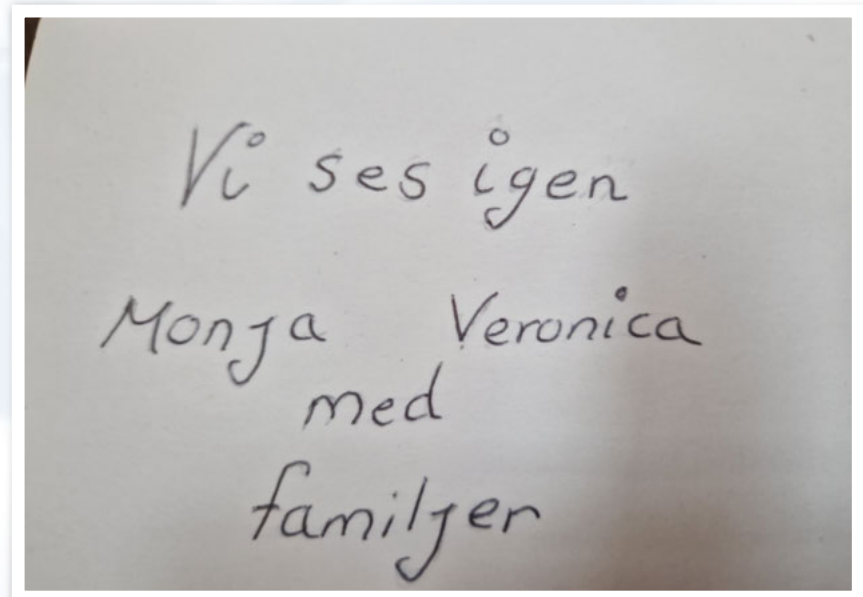 Vi ses igen
Monja Veronica
med
familjer